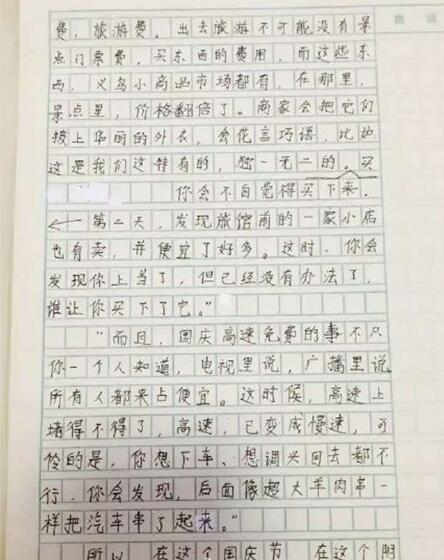 费，旅游费。出去旅游不可能没有景
点门票费，买东西的费用，而这些东
西，义乌小商品市场都有，在那里，
景点里，价格翻倍了。商家会把它们
披上华丽的外衣，会花言巧语，比如
这是我们这特有的，独一无二的。买
你会不自觉得买下来，
第二天，发现旅馆前的一家小店
也有卖，并便宜了好多。这时，你会
发现你上当了，但已经没有办法了，
谁让你买下了它。”
“而且，国庆高速免费的事不只
你一个人知道，电视里说，广播里说
所有人都来占便宜。这时候，高速上
堵得不得了，高速，已变成慢速，可
怜的是，你想下车、想调头回去都不
行，你会发现，后面像超大羊肉串一
样把汽车串了起来。”
所以，在这个国庆节，在这个阴